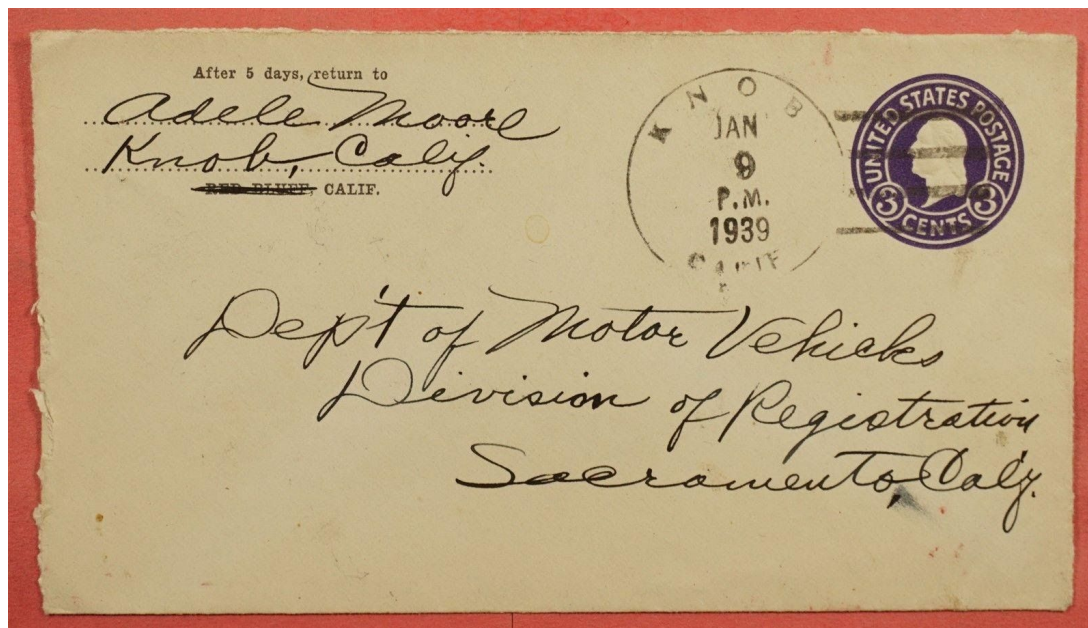 After 5 days, return to
Adele Moore
Knob, Calif.
RED BLUFF, CALIF.
KNOB
JAN
9
P.M.
1939
CALIF
UNITED STATES POSTAGE
3 CENTS 3
Dep't of Motor Vehicles
Division of Registration
Sacramento, Calif.